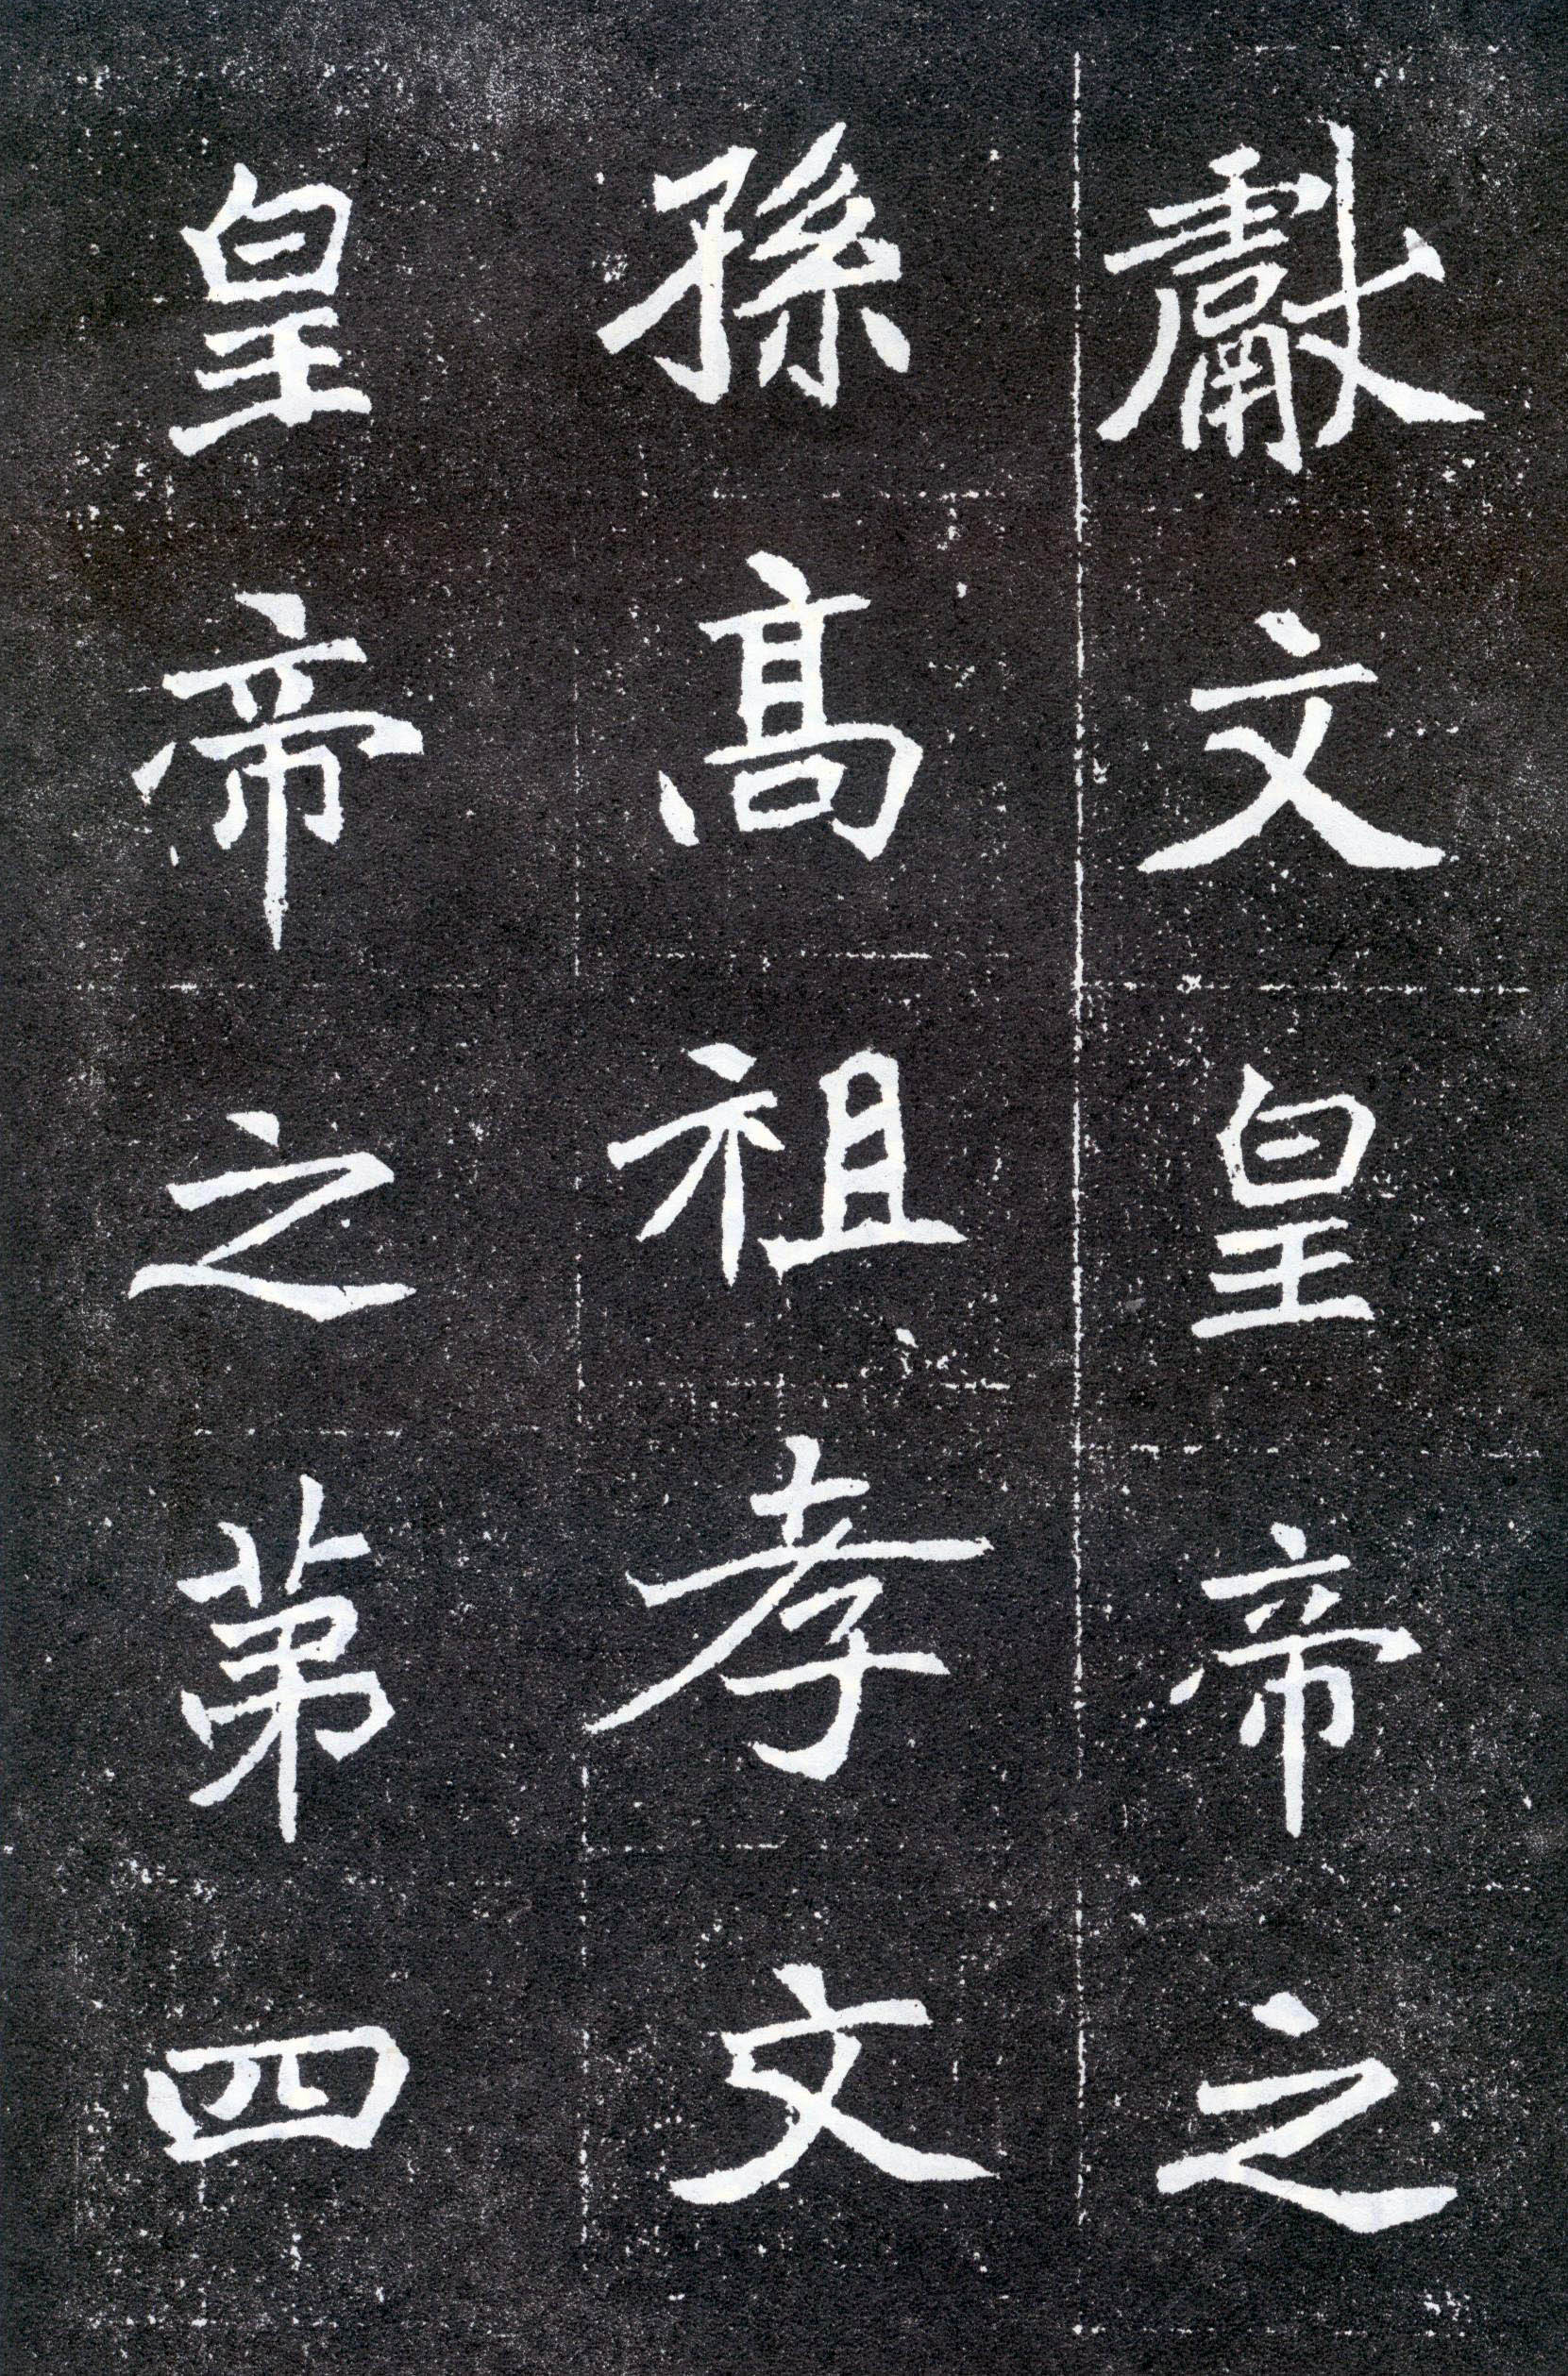 獻文皇帝之
孫高祖孝文
皇帝之苐四